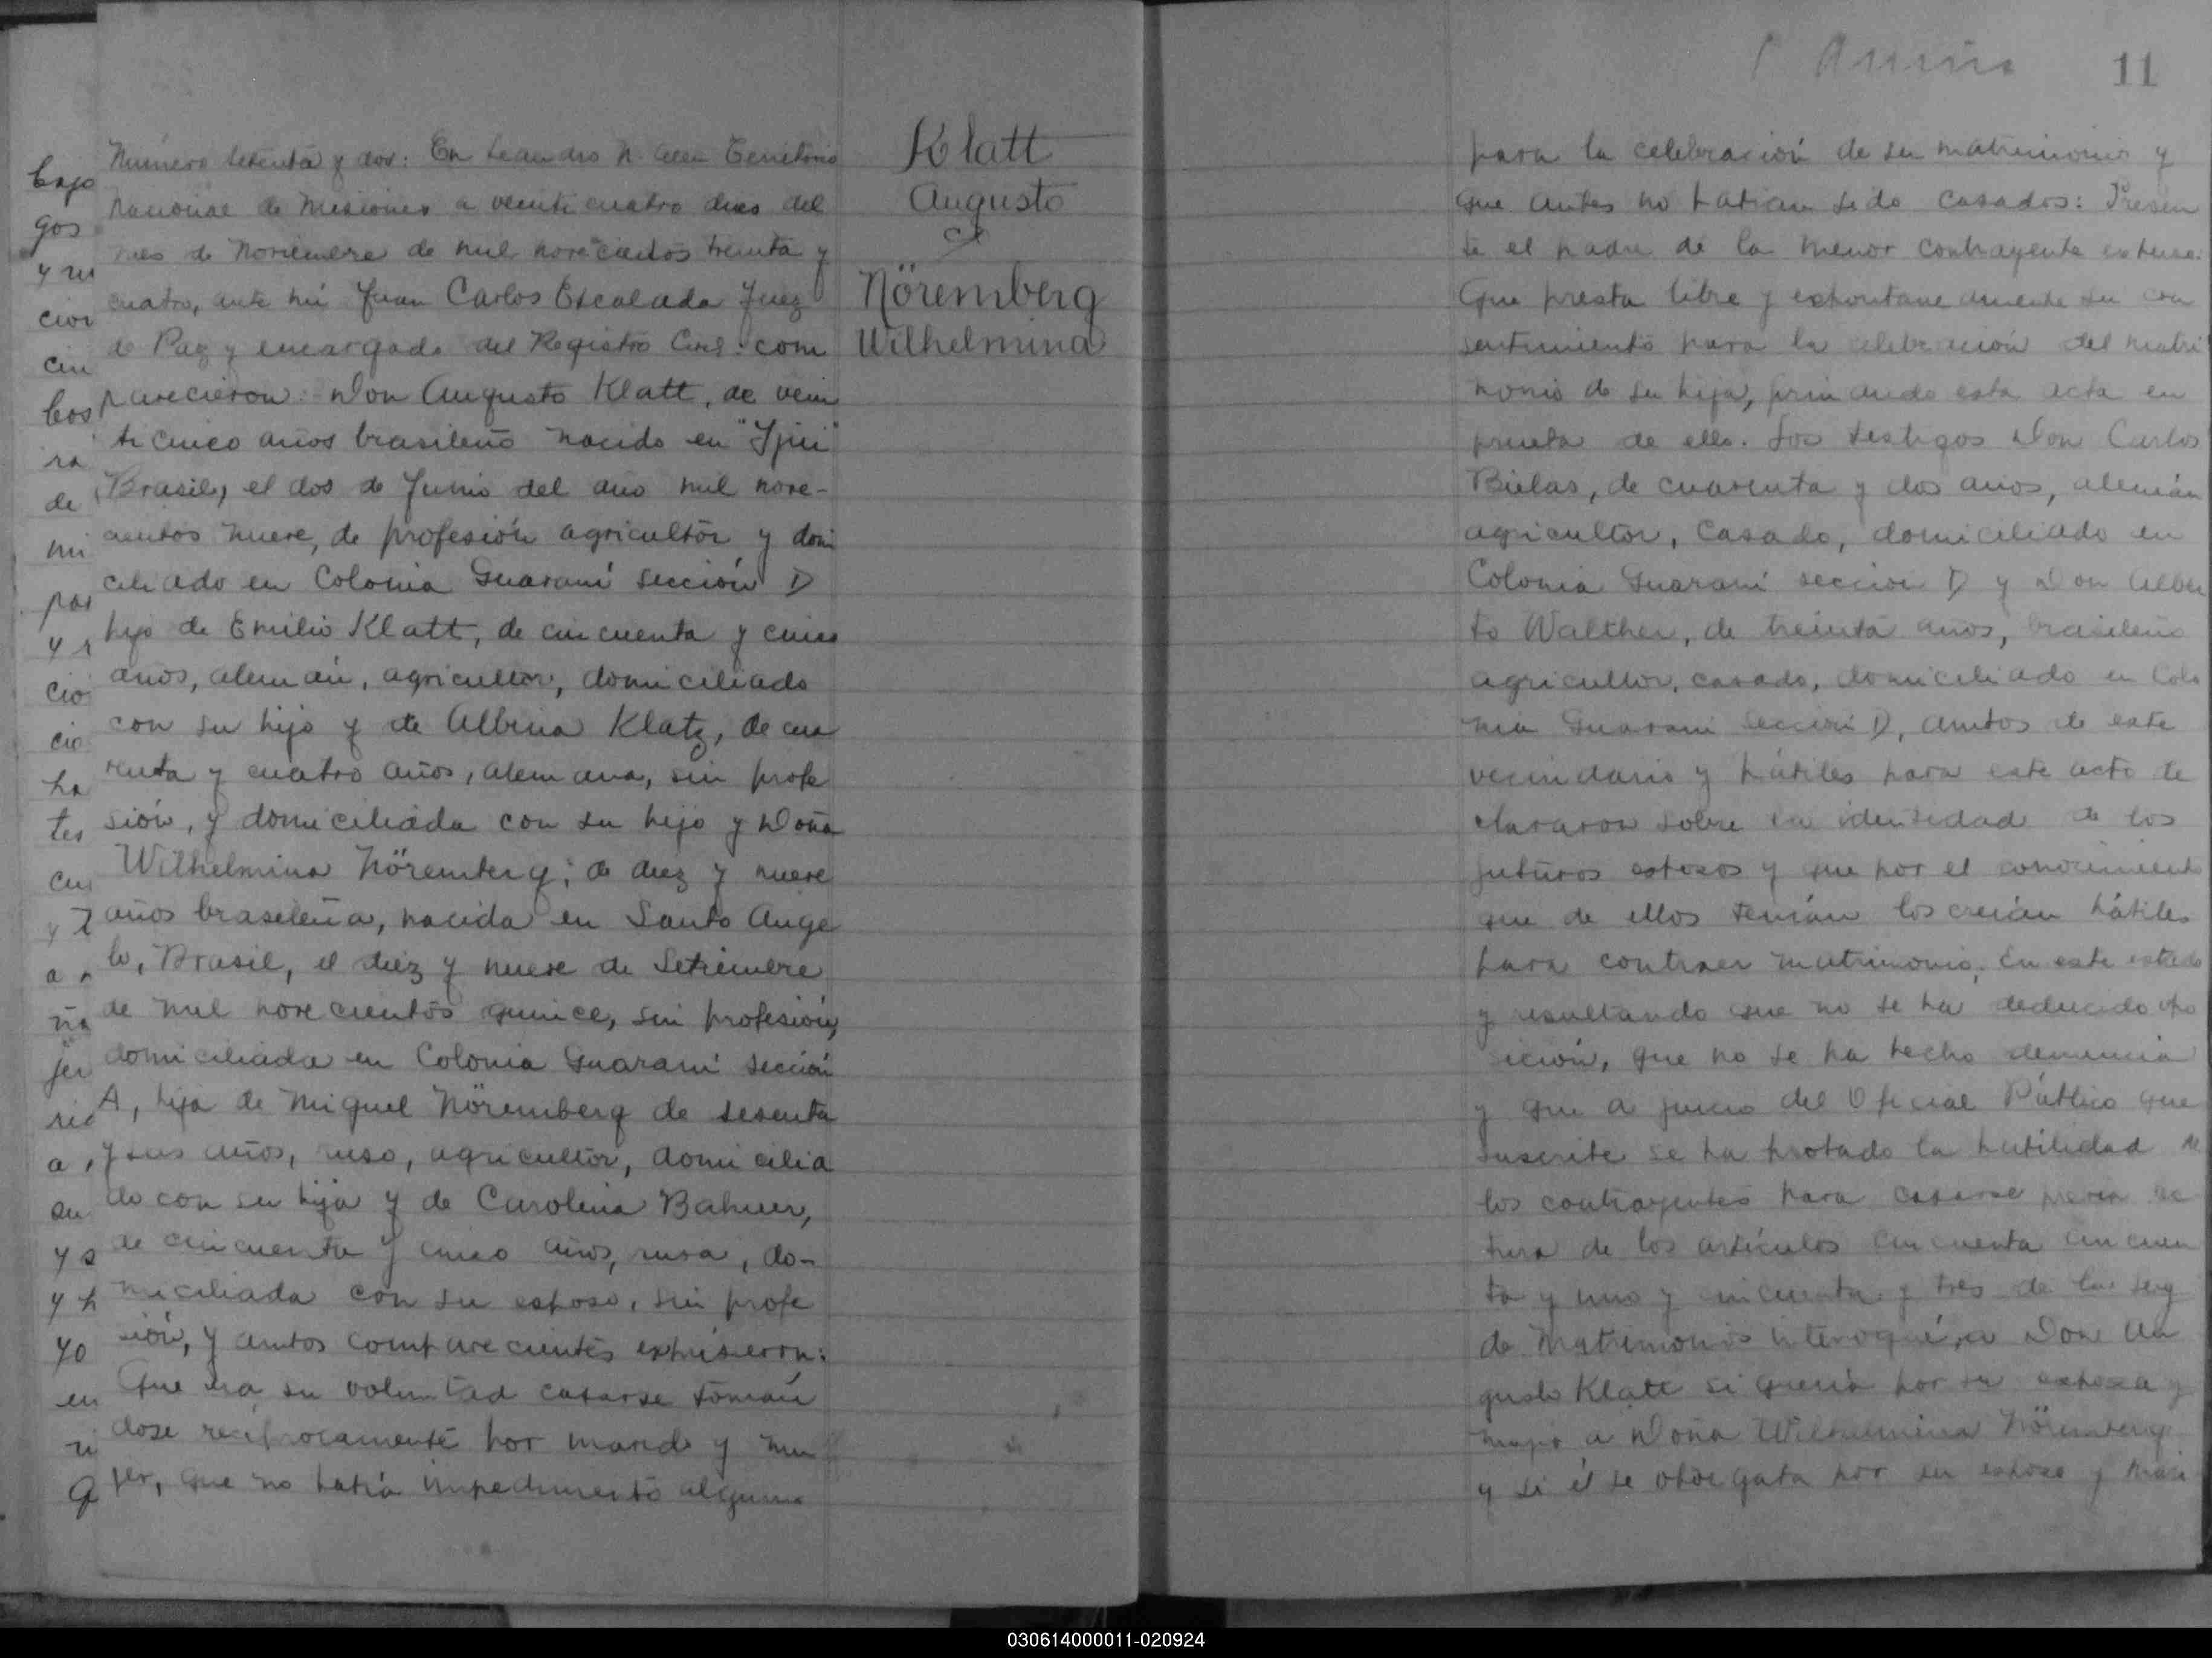 bajo
gos
y ru
cion
cin
bos
ra
de
mi
par
y r
ció
cio
ha
tes
cu
y
a
ña
jer
ric
a
su
y s
y h
yo
en
ri
Q
Número setenta y dos: En Leandro N. Alem Territorio
Nacional de Misiones a veinticuatro dias del
mes de Noviembre de mil novecientos treinta y
cuatro, ante mi Juan Carlos Escalada Juez
de Paz y encargado del Registro Civil: com
parecieron: Don Augusto Klatt, de vein
ticinco años brasileño nacido en "Yjui"
(Brasil) el dos de Junio del año mil nove-
cientos nueve, de profesión agricultor y domi
ciliado en Colonia Guaraní sección D
hijo de Emilio Klatt, de cincuenta y cinco
años, alemán, agricultor, domiciliado
con su hijo y de Albina Klatz, de cua
renta y cuatro años, alemana, sin profe
sión, y domiciliada con su hijo y Doña
Wilhelmina Nöremberg; de diez y nueve
años brasileña, nacida en Santo Ange
lo, Brasil, el diez y nueve de Setiembre
de mil novecientos quince, sin profesión,
domiciliada en Colonia Guaraní sección
A, hija de Miguel Nöremberg de sesenta
y seis años, ruso, agricultor, domicilia
do con su hija y de Carolina Bahuer,
de cincuenta y cinco años, rusa, do-
miciliada con su esposo, sin profe
sión, y ambos comparecientes expusieron:
Que era su voluntad casarse tomán
dose recíprocamente por marido y mu
jer, que no había impedimento alguno
Klatt
Augusto
c/
Nöremberg
Wilhelmina
11
para la celebración de su matrimonio y
que antes no habian sido casados: Presen
te el padre de la menor contrayente expuso:
Que presta libre y espontaneamente su con
sentimiento para la celebración del matri
monio de su hija, firmando esta acta en
prueba de ello. Los testigos Don Carlos
Bielas, de cuarenta y dos años, alemán
agricultor, casado, domiciliado en
Colonia Guaraní sección D y Don Alber
to Walther, de treinta años, brasileño
agricultor, casado, domiciliado en Colo
nia Guaraní sección D, ambos de este
vecindario y hábiles para este acto de
clararon sobre la identidad de los
futuros esposos y que por el conocimiento
que de ellos tenían los creían hábiles
para contraer matrimonio. En este estado
y resultando que no se ha deducido opo
sición, que no se ha hecho denuncia
y que a juicio del Oficial Público que
suscribe se ha probado la habilidad de
los contrayentes para casarse previa lec
tura de los artículos cincuenta cincuen
ta y uno y cincuenta y tres de la Ley
de Matrimonio interogué, a Don Au
gusto Klatt si quería por su esposa y
mujer a Doña Wilhelmina Nöremberg
y si él se otorgaba por su esposo y mari
030614000011-020924